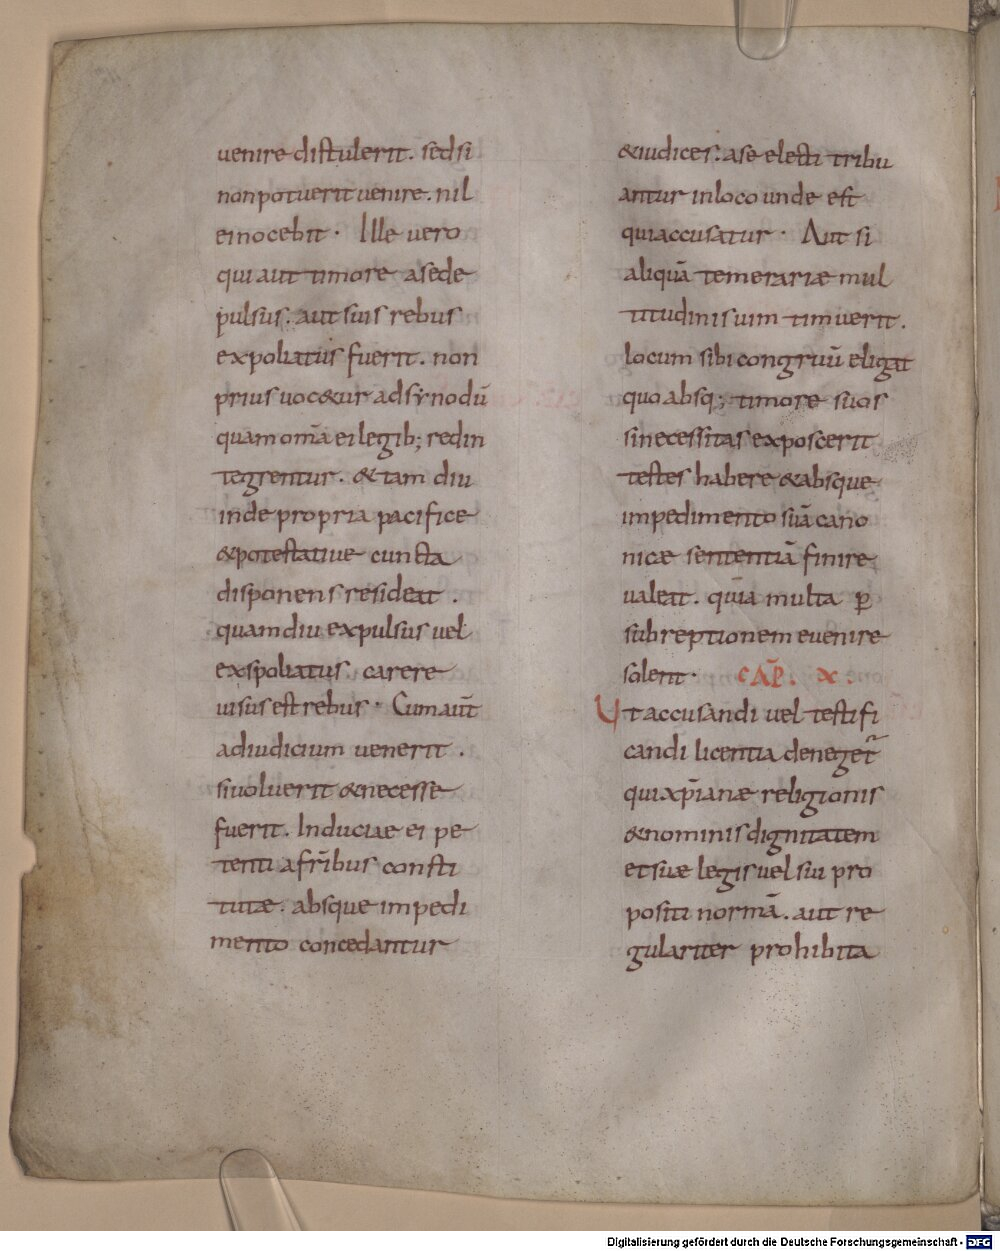 uenire distulerit. sed si
non potuerit uenire. nil
ei nocebit. Ille uero
qui aut timore a sede
pulsus. aut suis rebus
expoliatus fuerit. non
prius uoc&ur ad synodū
quam om̄a ei legib; redin
tegrentur. & tam diu
inde propria pacifice
& potestatiue cuncta
disponens resideat.
quamdiu expulsus uel
exspoliatus. carere
uisus est rebus. Cum aūt
ad iudicium uenerit.
si uoluerit & necesse
fuerit. Induciae ei pe
tenti a frībus consti
tutæ. absque impedi
mento concedantur
& iudices. a se electi tribu
antur in loco unde est
qui accusatur. Aut si
aliquā temerariæ mul
titudinis uim timuerit.
locum sibi congruū eligat
quo absq; timore suos
si necessitas exposcerit
testes habere & absque
impedimento suā cano
nicæ sententiā finire
ualeat. quia multa ꝑ
subreptionem euenire
solent. CAP̄. X.
Ut accusandi uel testifi
candi licentia deneget̄
qui xp̄ianæ religionis
& nominis dignitatem
et suæ legis uel sui pro
positi normā. aut re
gulariter prohibita
Digitalisierung gefördert durch die Deutsche Forschungsgemeinschaft - DFG